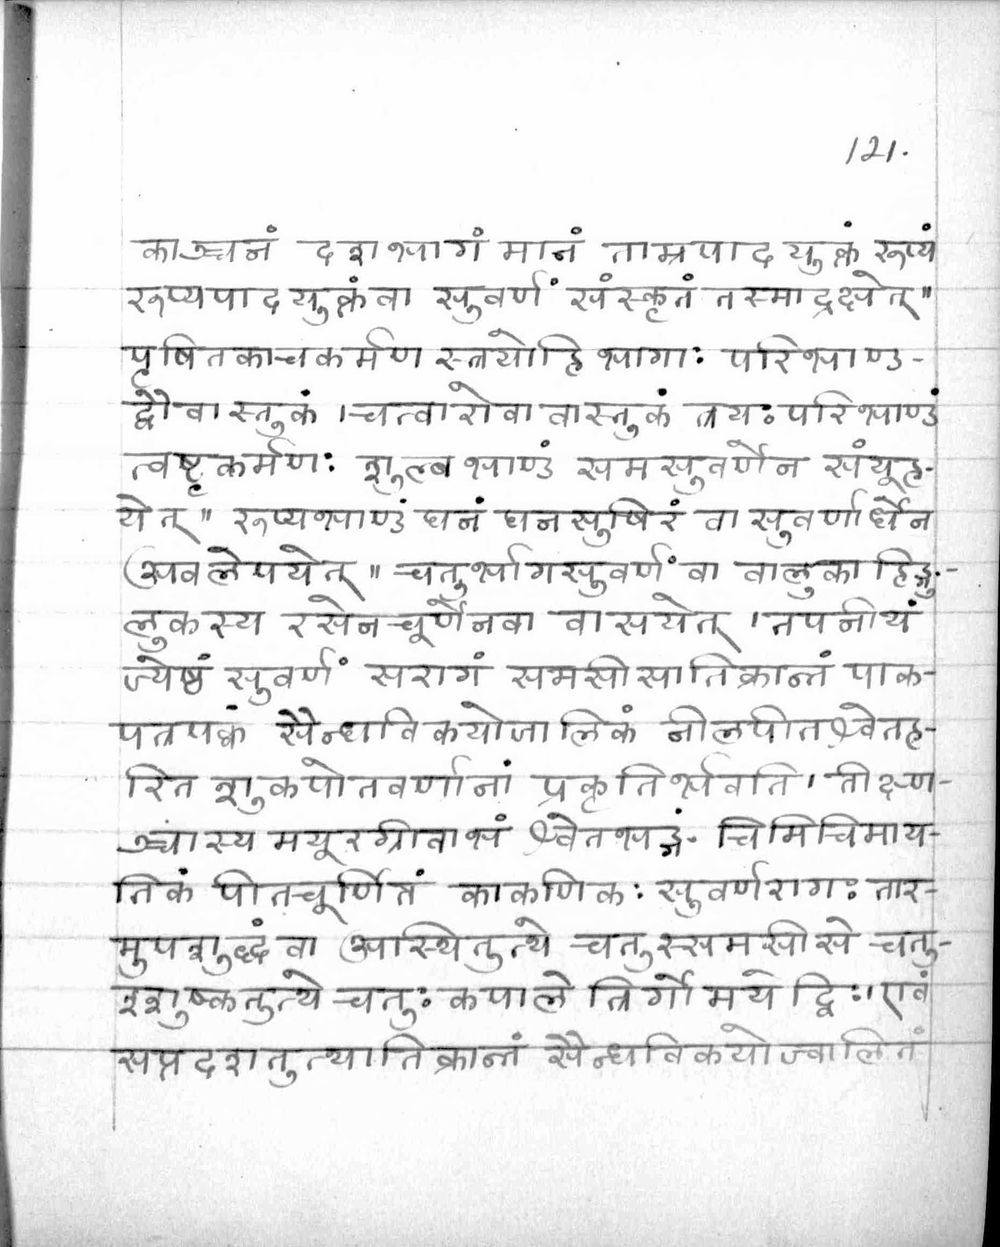 121.
काञ्चनं दशभागं मानं ताम्रपादयुक्तं रूप्यं
रूप्यपादयुक्तं वा सुवर्णं संस्कृतं तस्माद्रक्षेत् ॥
पृषितकाचकर्मण स्त्रयोहि भागाः परिभाण्ड-
द्वौ वास्तुकं । चत्वारो वा वास्तुकं त्रयः परिभाण्डं
त्वष्टृकर्मणः शुल्बभाण्डं समसुवर्णेन संयूह-
येत् ॥ रूप्यभाण्डं घनं घनसुषिरं वा सुवर्णार्धेन
अवलेपयेत् ॥ चतुर्भागसुवर्णं वा वालुकाहिङ्गु-
लुकस्य रसेन चूर्णेनवा वासयेत् । तपनीयं
ज्येष्ठं सुवर्णं सरागं समसीसातिक्रान्तं पाक-
पत्रपक्वं सैन्धविकयोजालिकं नीलपीतश्वेतह-
रित शुकपोतवर्णानां प्रकृतिर्भवति । तीक्ष्ण-
ञ्चास्य मयूरग्रीवाभं श्वेतभङ्गं चिमिचिमाय-
तिकं पीतचूर्णितं काकणिकः सुवर्णरागः तार-
मुपशुद्धं वा आस्थितुत्थे चतुस्समसीसे चतु-
श्शुष्कतुत्थे चतुः कपाले त्रिर्गोमये द्विः । एवं
सप्तदशतुत्थातिक्रान्तं सैन्धविकयोज्वालितं